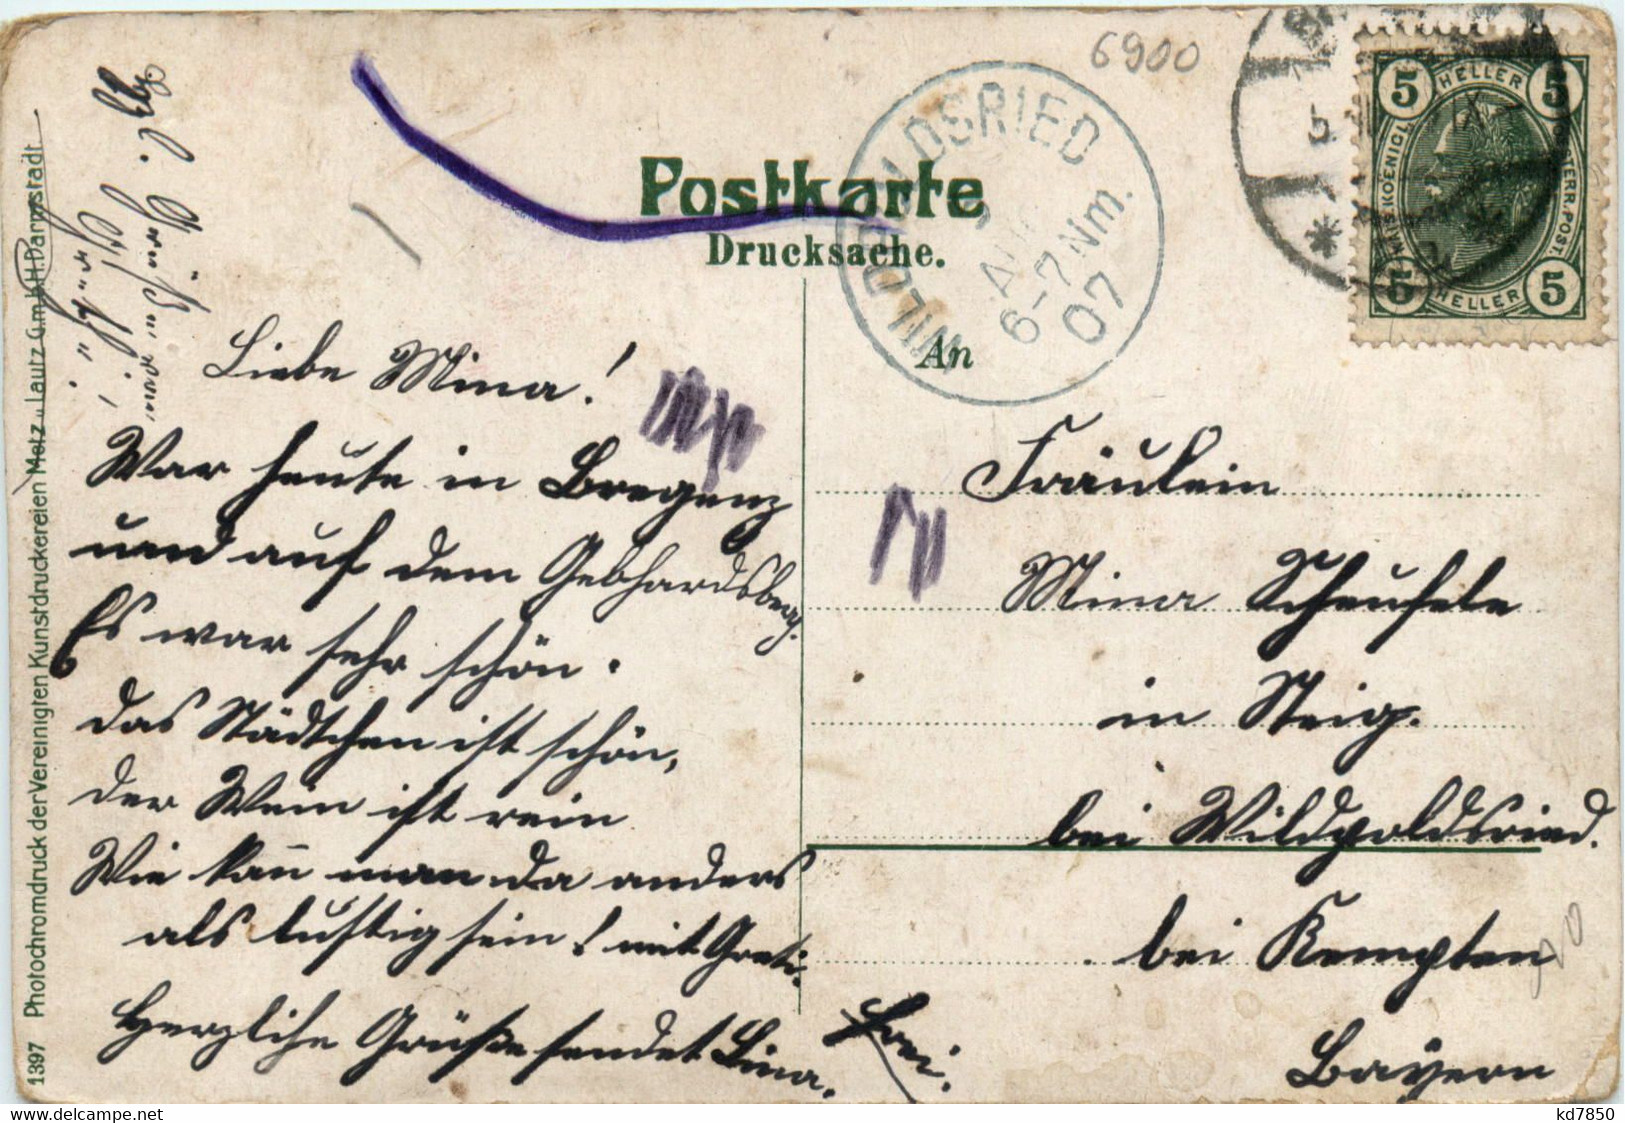 6900
Postkarte
Drucksache.
WILDPOLDSRIED
AUG
6-7 Nm.
07
5 HELLER 5
5 HELLER 5
An
Liebe Mina!
War heute in Bregenz
und auf dem Gebhardsberg.
Es war sehr schön.
das Städtchen ist schön,
der Wein ist rein
Wie kann man da anders
als lustig sein! mit Greti.
Herzliche Grüße sendet Lina.
Frei.
Fräulein
Mina Scheufele
in Steig.
bei Wildpoldsried.
bei Kempten
Bayern
Herzl. Grüße
1397 Photochromdruck der Vereinigten Kunstdruckereien Metz u. Lautz G.m.b.H. Darmstadt
delcampe.net
kd7850